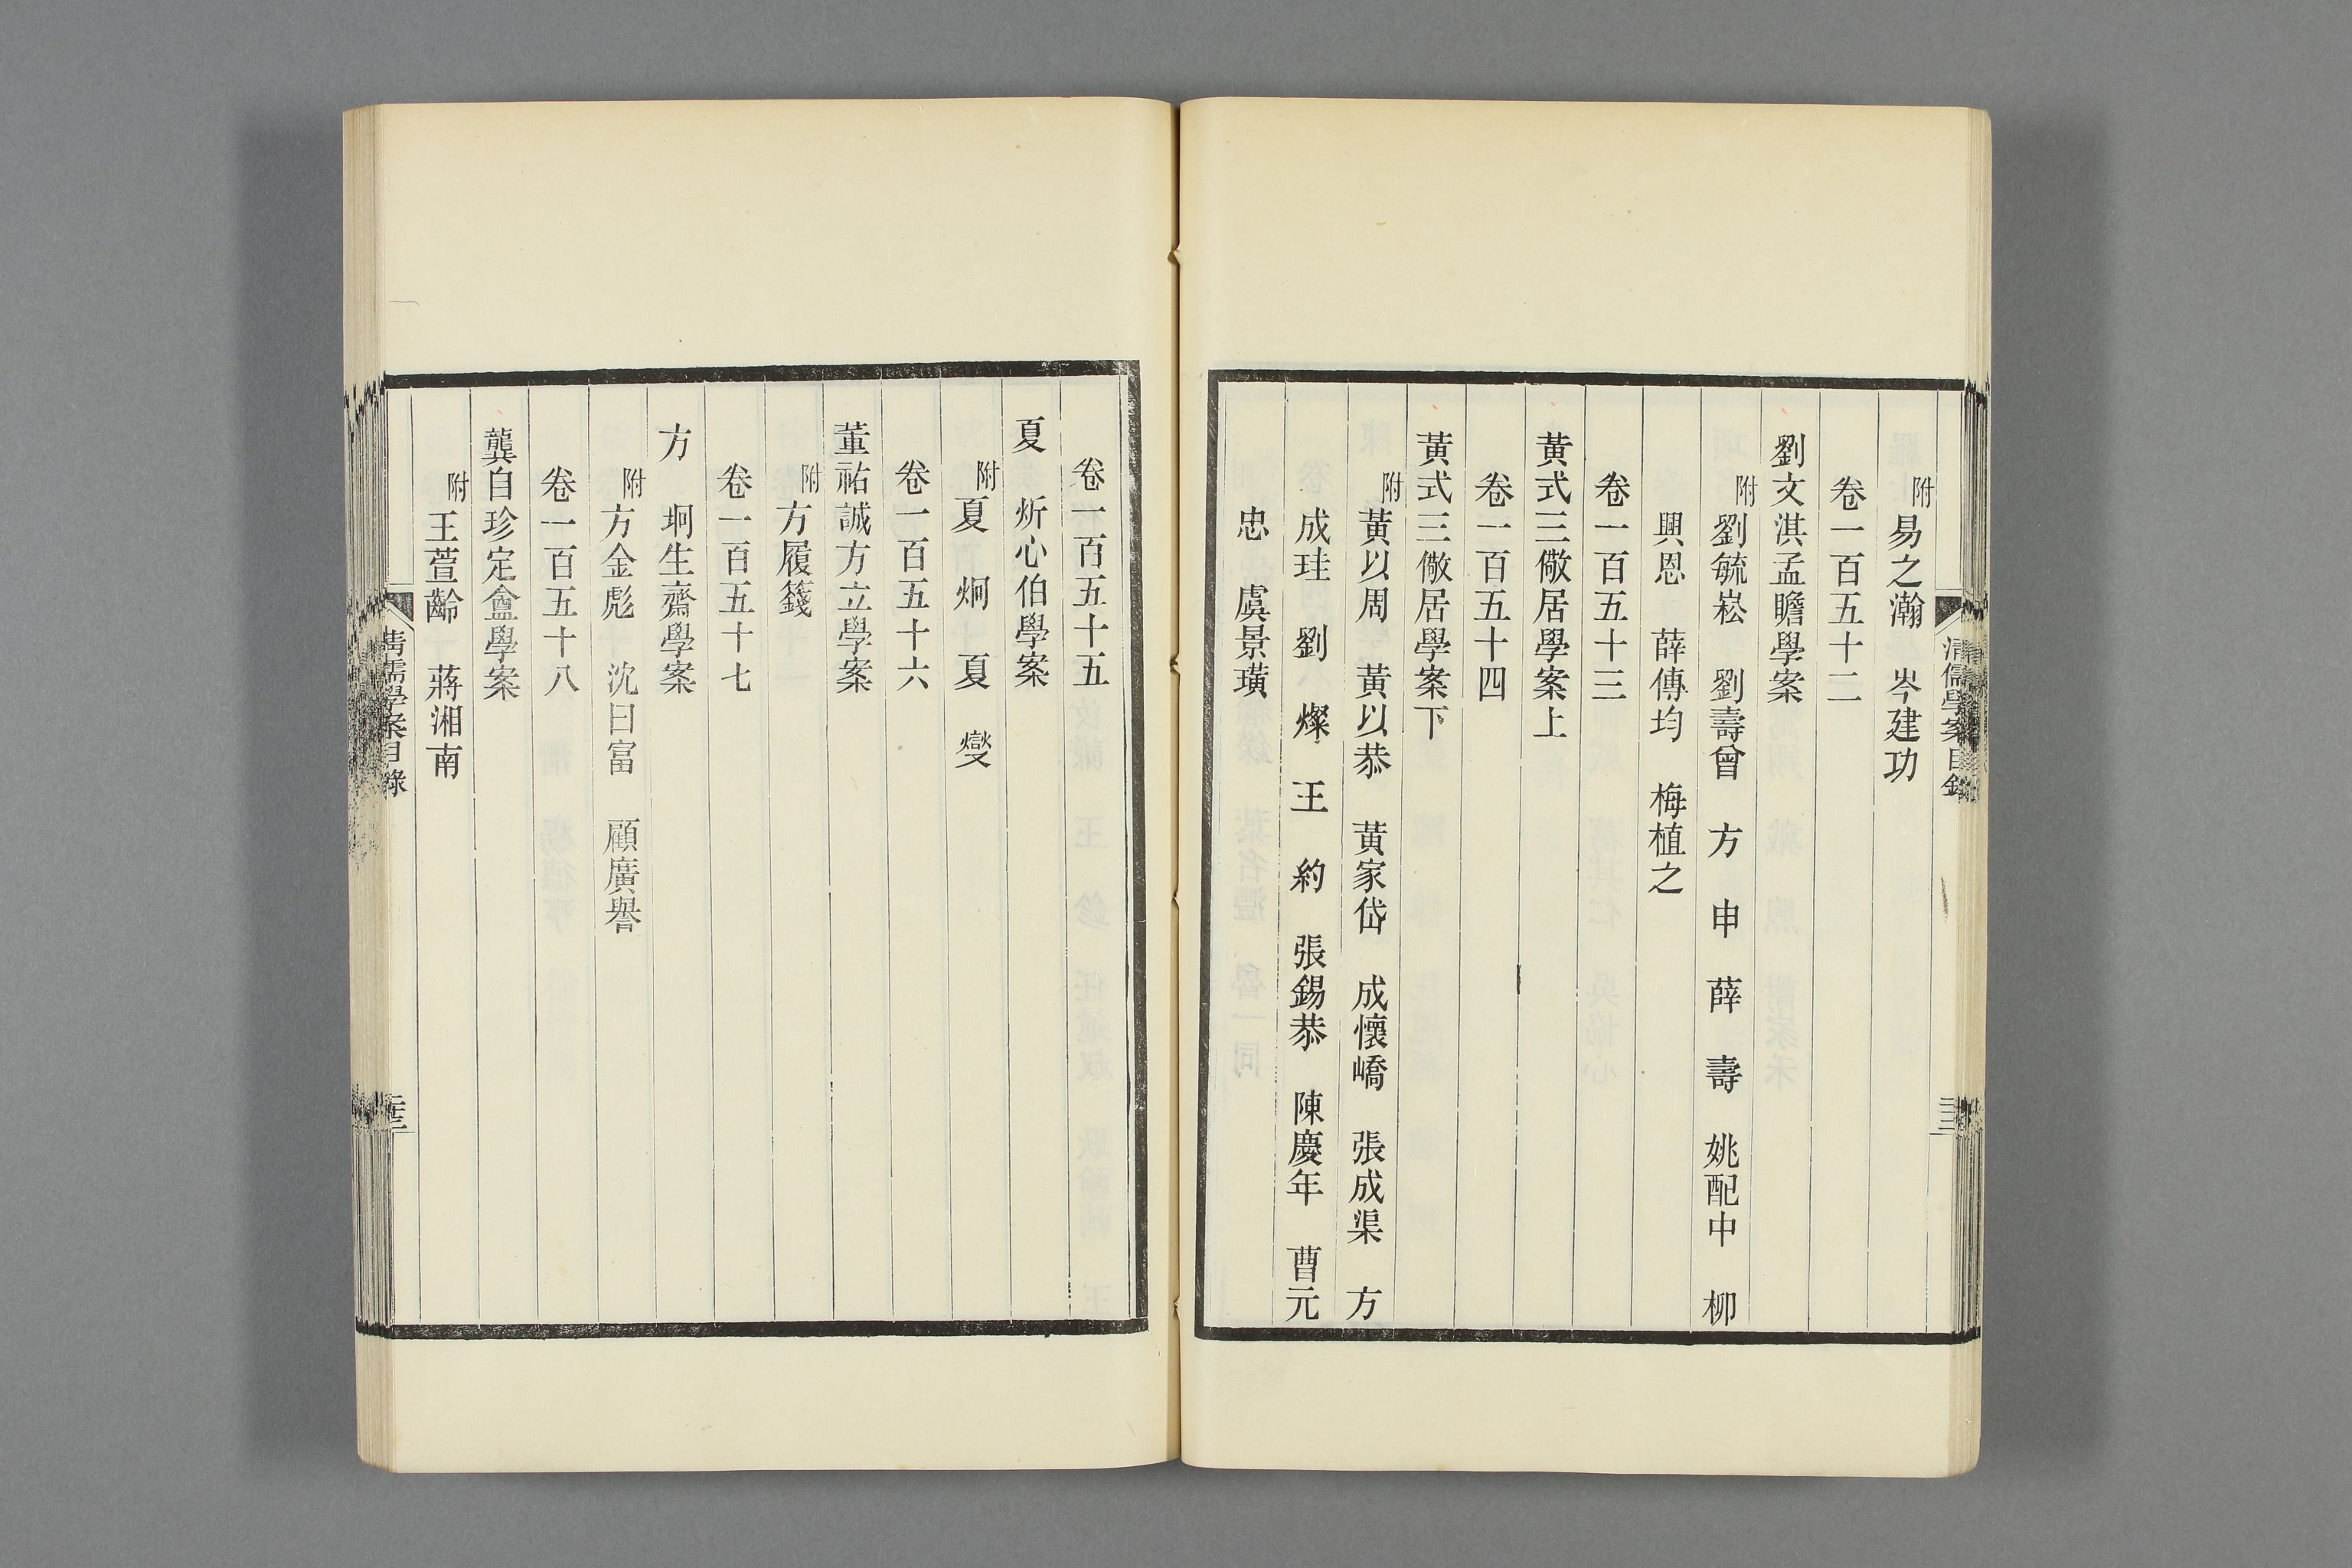 清儒學案目錄
附易之瀚　岑建功
卷一百五十二
劉文淇孟瞻學案
附劉毓崧　劉壽曾　方　申　薛　壽　姚配中　柳
興恩　薛傳均　梅植之
卷一百五十三
黃式三儆居學案上
卷一百五十四
黃式三儆居學案下
附黃以周　黃以恭　黃家岱　成懷嶠　張成渠　方
成珪　劉　燦　王　約　張錫恭　陳慶年　曹元
忠　虞景璜
卷一百五十五
夏　炘心伯學案
附夏　炯　夏　燮
卷一百五十六
董祐誠方立學案
附方履籛
卷一百五十七
方　坰生齋學案
附方金彪　沈曰富　顧廣譽
卷一百五十八
龔自珍定盦學案
附王萱齡　蔣湘南
清儒學案目錄